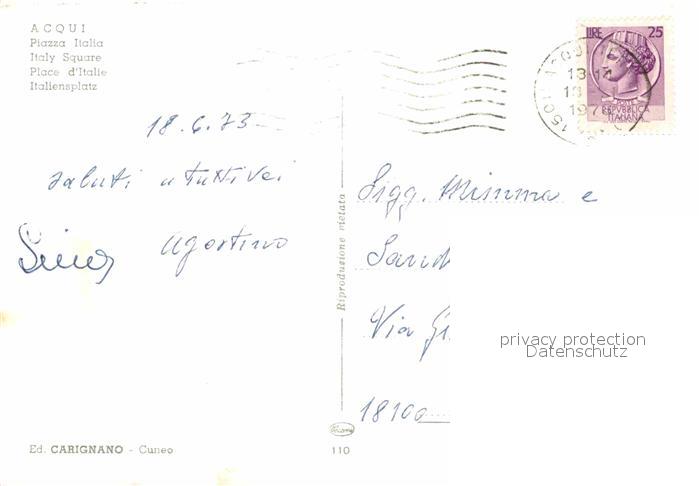 ACQUI
Piazza Italia
Italy Square
Place d'Italie
Italiensplatz
LIRE 25
POSTE
REPUBBLICA
ITALIANA
18.6.73
saluti a tutti voi
Agostino
Riproduzione vietata
Sigg. Mimma e
Sand
Via Gi
18100
privacy protection
Datenschutz
Ed. CARIGNANO - Cuneo
110